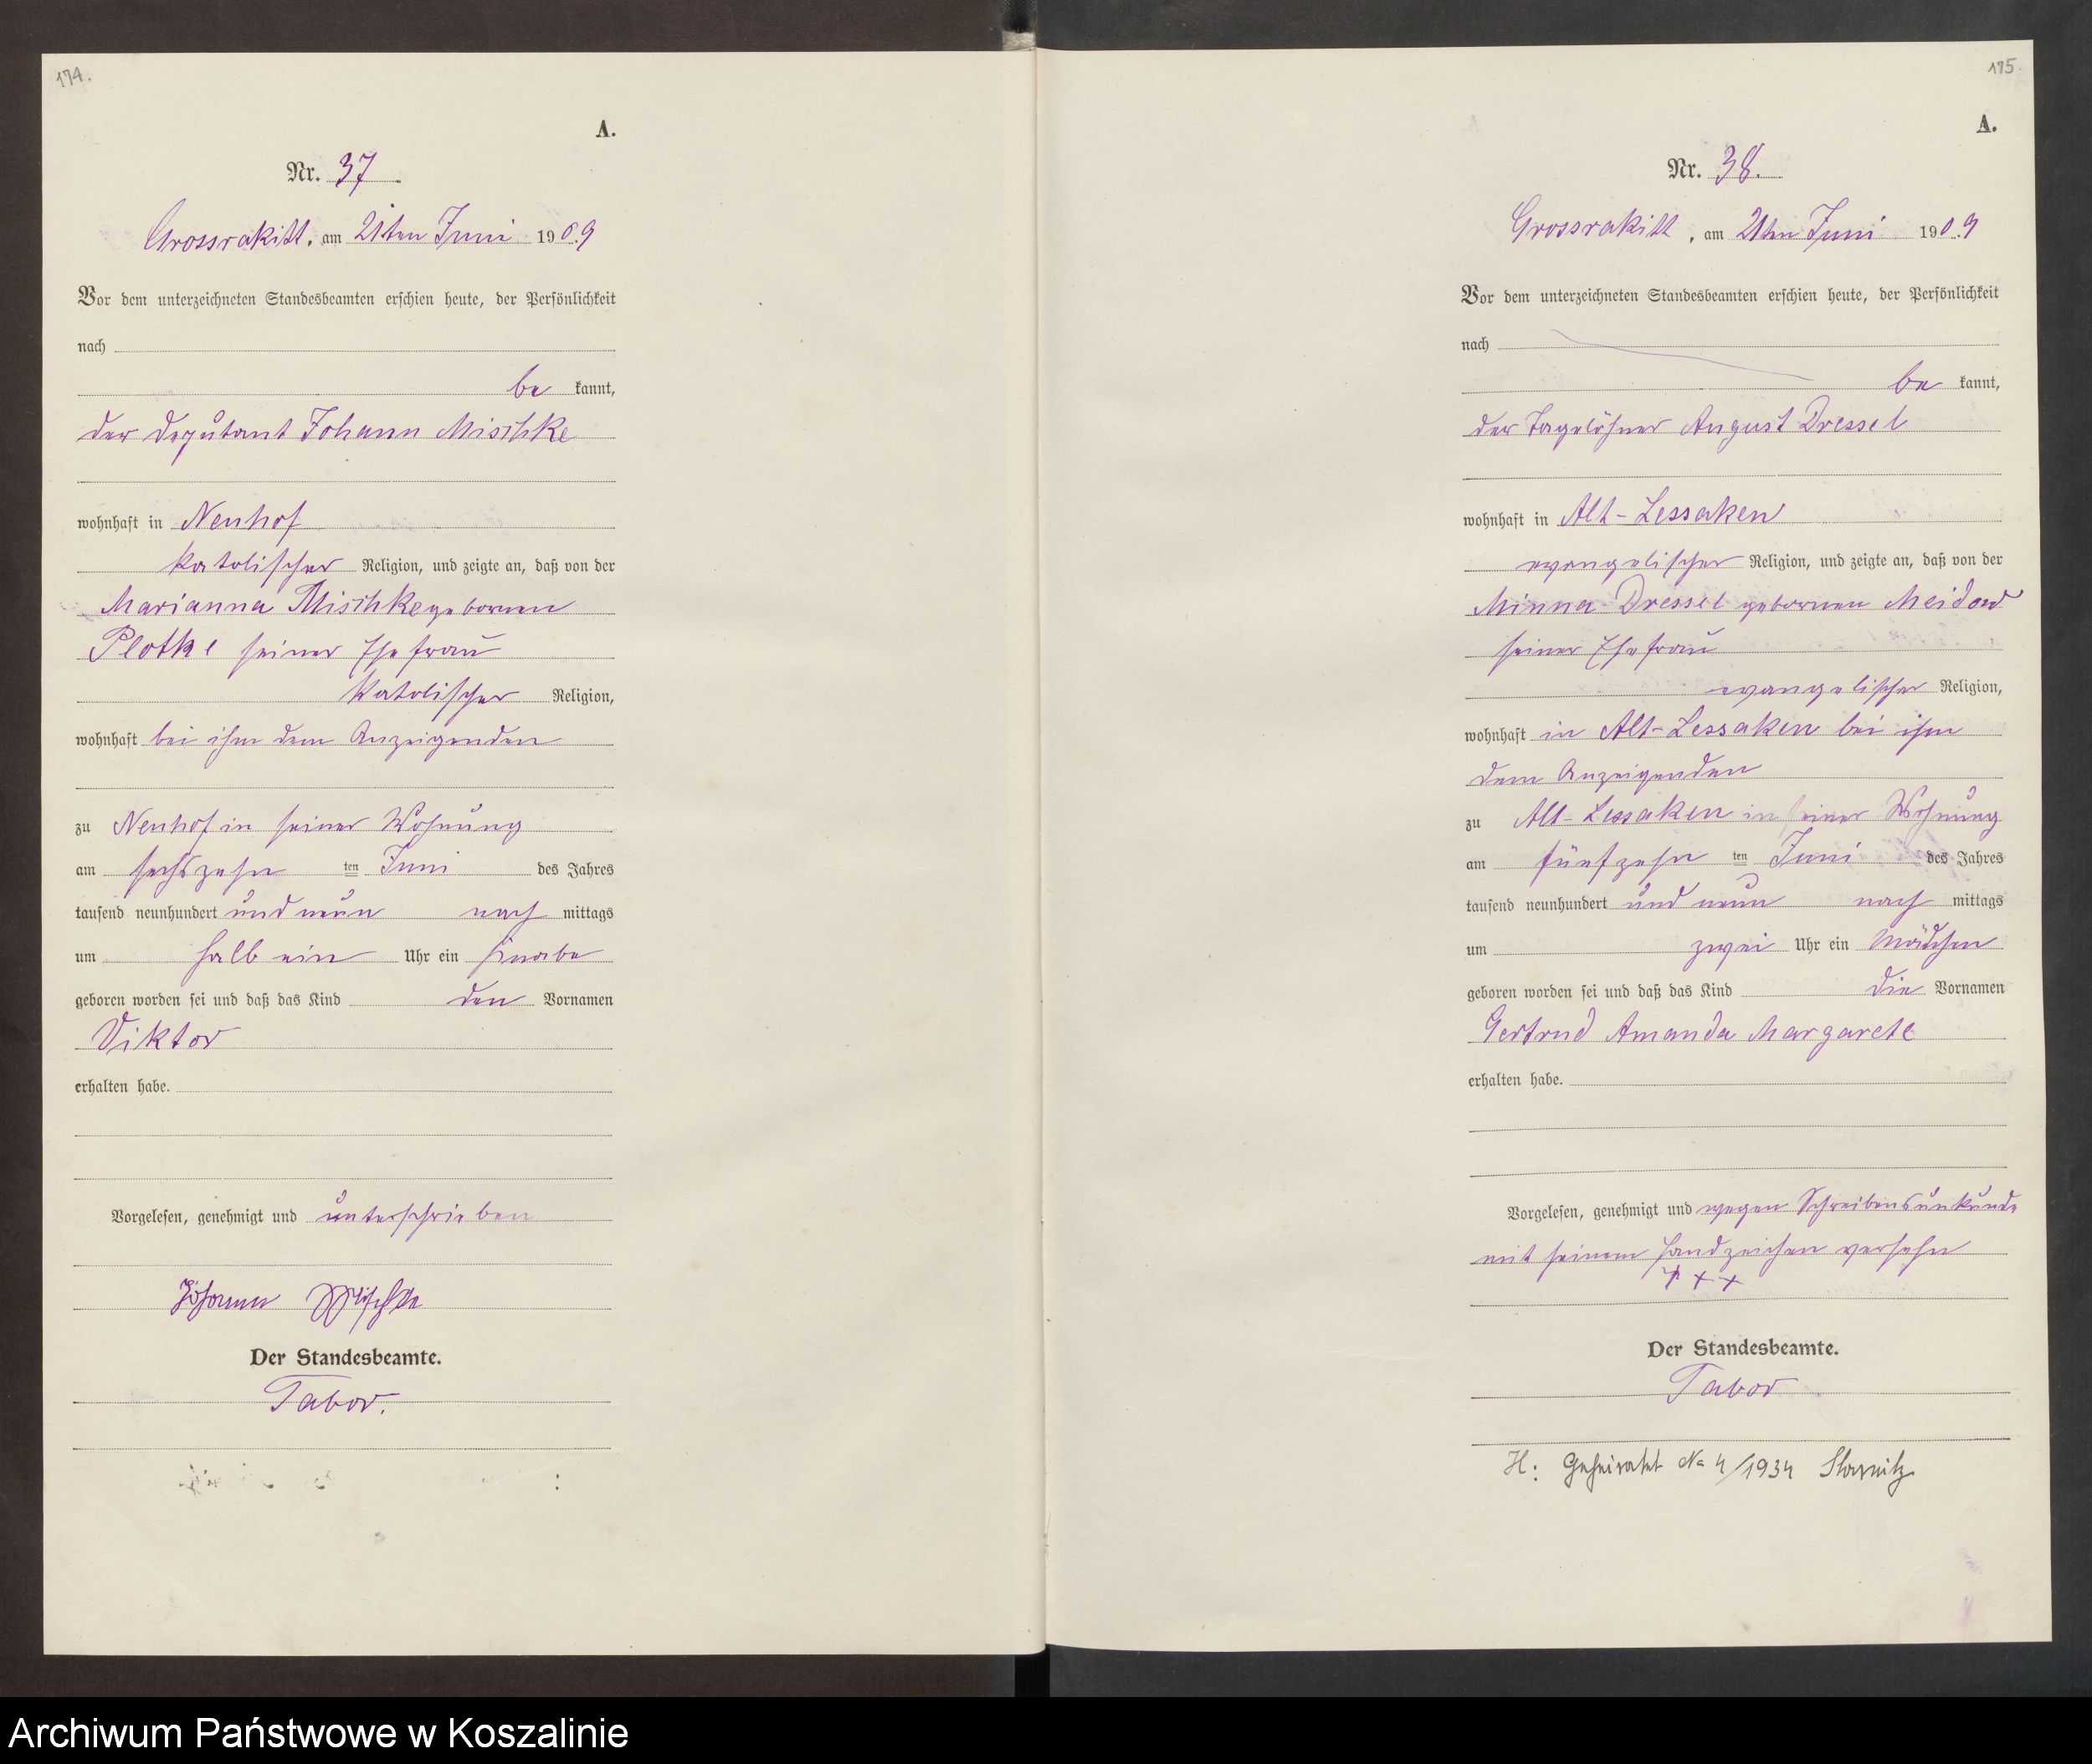 174.
A.
Nr. 37
Grossrakitt, am 21ten Juni 1909
Vor dem unterzeichneten Standesbeamten erschien heute, der Persönlichkeit
nach
be kannt,
der Deputant Johann Mischke
wohnhaft in Neuhof
katolischer Religion, und zeigte an, daß von der
Marianna Mischke gebornen
Plotke seiner Ehefrau
katolischer Religion,
wohnhaft bei ihm dem Anzeigenden
zu Neuhof in seiner Wohnung
am sechszehn ten Juni des Jahres
tausend neunhundert und neun nach mittags
um halb ein Uhr ein Knabe
geboren worden sei und daß das Kind den Vornamen
Viktor
erhalten habe.
Vorgelesen, genehmigt und unterschrieben
Johann Mischke
Der Standesbeamte.
Tabor.
175.
A.
Nr. 38.
Grossrakitt, am 21ten Juni 1909
Vor dem unterzeichneten Standesbeamten erschien heute, der Persönlichkeit
nach
be kannt,
der Tagelöhner August Dressel
wohnhaft in Alt-Lessaken
evangelischer Religion, und zeigte an, daß von der
Minna Dressel gebornen Meidow
seiner Ehefrau
evangelischer Religion,
wohnhaft in Alt-Lessaken bei ihm
dem Anzeigenden
zu Alt-Lessaken in seiner Wohnung
am fünfzehn ten Juni des Jahres
tausend neunhundert und neun nach mittags
um zwei Uhr ein Mädchen
geboren worden sei und daß das Kind die Vornamen
Gertrud Amanda Margarete
erhalten habe.
Vorgelesen, genehmigt und wegen Schreibensunkunde
mit seinem Handzeichen versehn
+ + +
Der Standesbeamte.
Tabor
H: Geheiratet No 4/1934
Archiwum Państwowe w Koszalinie